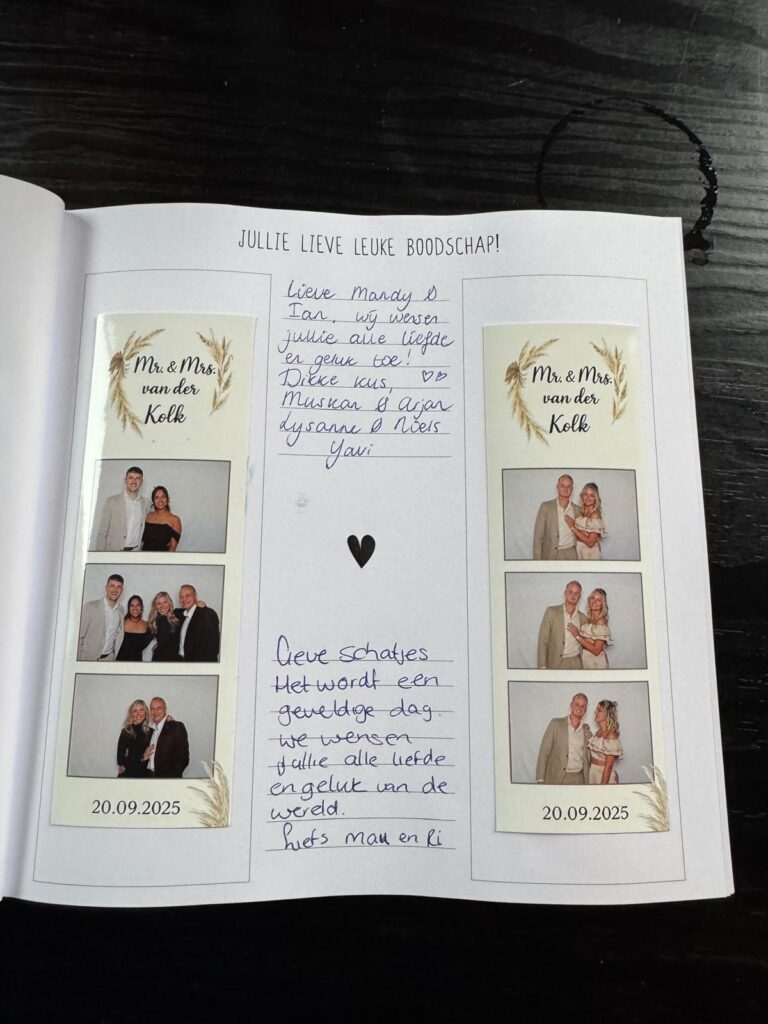 JULLIE LIEVE LEUKE BOODSCHAP!
Mr. & Mrs.
van der
Kolk
20.09.2025
Lieve Mandy &
Ian, wij wensen
jullie alle liefde
en geluk toe!
Dikke kus,
Muskan & Arjan
Lysanne & Niels
Yavi
Lieve schatjes
Het wordt een
geweldige dag.
we wensen
jullie alle liefde
en geluk van de
wereld.
liefs en Ri
Mr. & Mrs.
van der
Kolk
20.09.2025